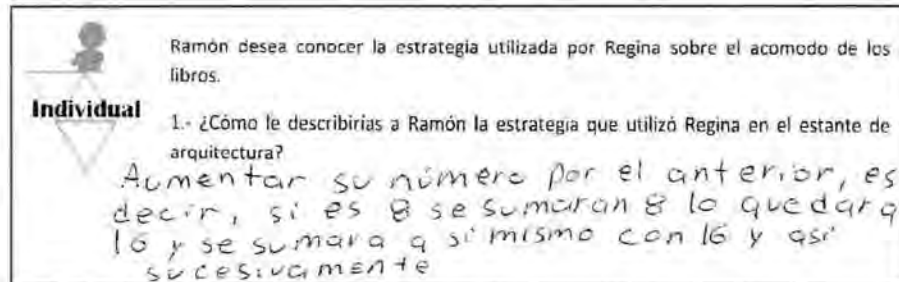 Ramón desea conocer la estrategia utilizada por Regina sobre el acomodo de los
libros.
Individual
1.- ¿Cómo le describirías a Ramón la estrategia que utilizó Regina en el estante de
arquitectura?
Aumentar su número por el anterior, es
decir, si es 8 se sumaran 8 lo quedara
16 y se sumara a si mismo con 16 y asi
sucesivamente